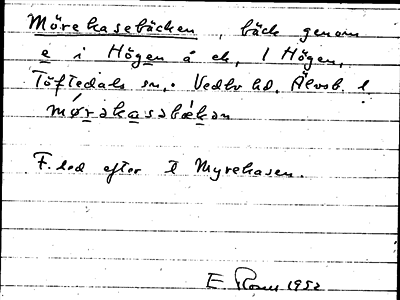 Mörekasebäcken, bäck genom
e i Högen å ek. 1 Högen,
Töftedals sn,. Vedbo hd. Älvsb. l
mørəkasəbækən
F. led efter t Myrekasen.
E 1952